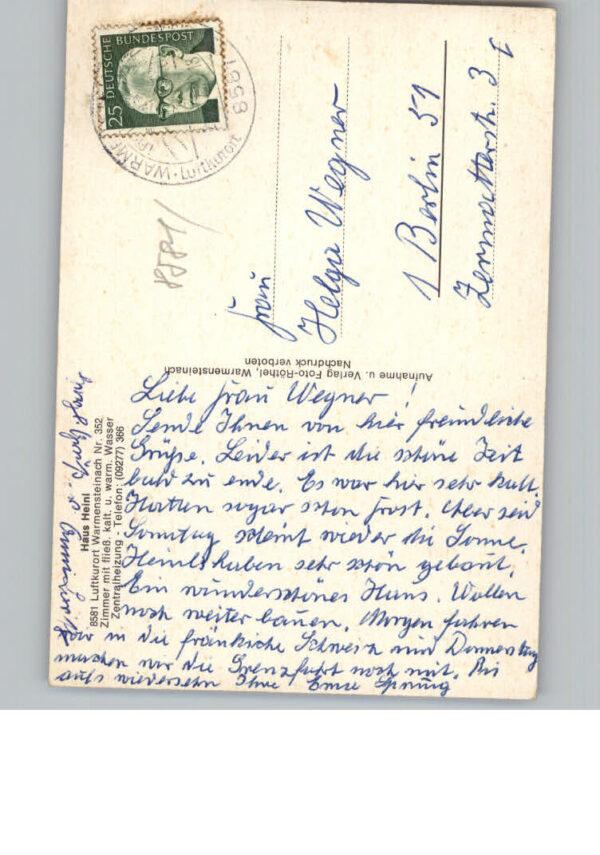 25 DEUTSCHE BUNDESPOST
8581
WARME
Luftkurort
8581
Frau
Helga Wegner
1 Berlin 51
Zermatterstr. 3
Aufnahme u. Verlag Foto-Röthel, Warmensteinach
Nachdruck verboten
Haus Heinl
8581 Luftkurort Warmensteinach Nr. 352
Zimmer mit fließ. kalt. u. warm. Wasser
Zentralheizung - Telefon: (09277) 366
Liebe Frau Wegner!
Sende Ihnen von hier freundliche
Grüße. Leider ist die schöne Zeit
bald zu ende. Es war hier sehr kalt.
Hatten sogar schon Frost. Aber seid
Sonntag scheint wieder die Sonne.
Heinls haben sehr schön gebaut.
Ein wunderschönes Haus. Wollen
noch weiter bauen. Morgen fahren
wir in die fränkische Schweiz und Donnerstag
machen wir die Grenzfahrt noch mit. Bis
aufs wiedersehn Ihre